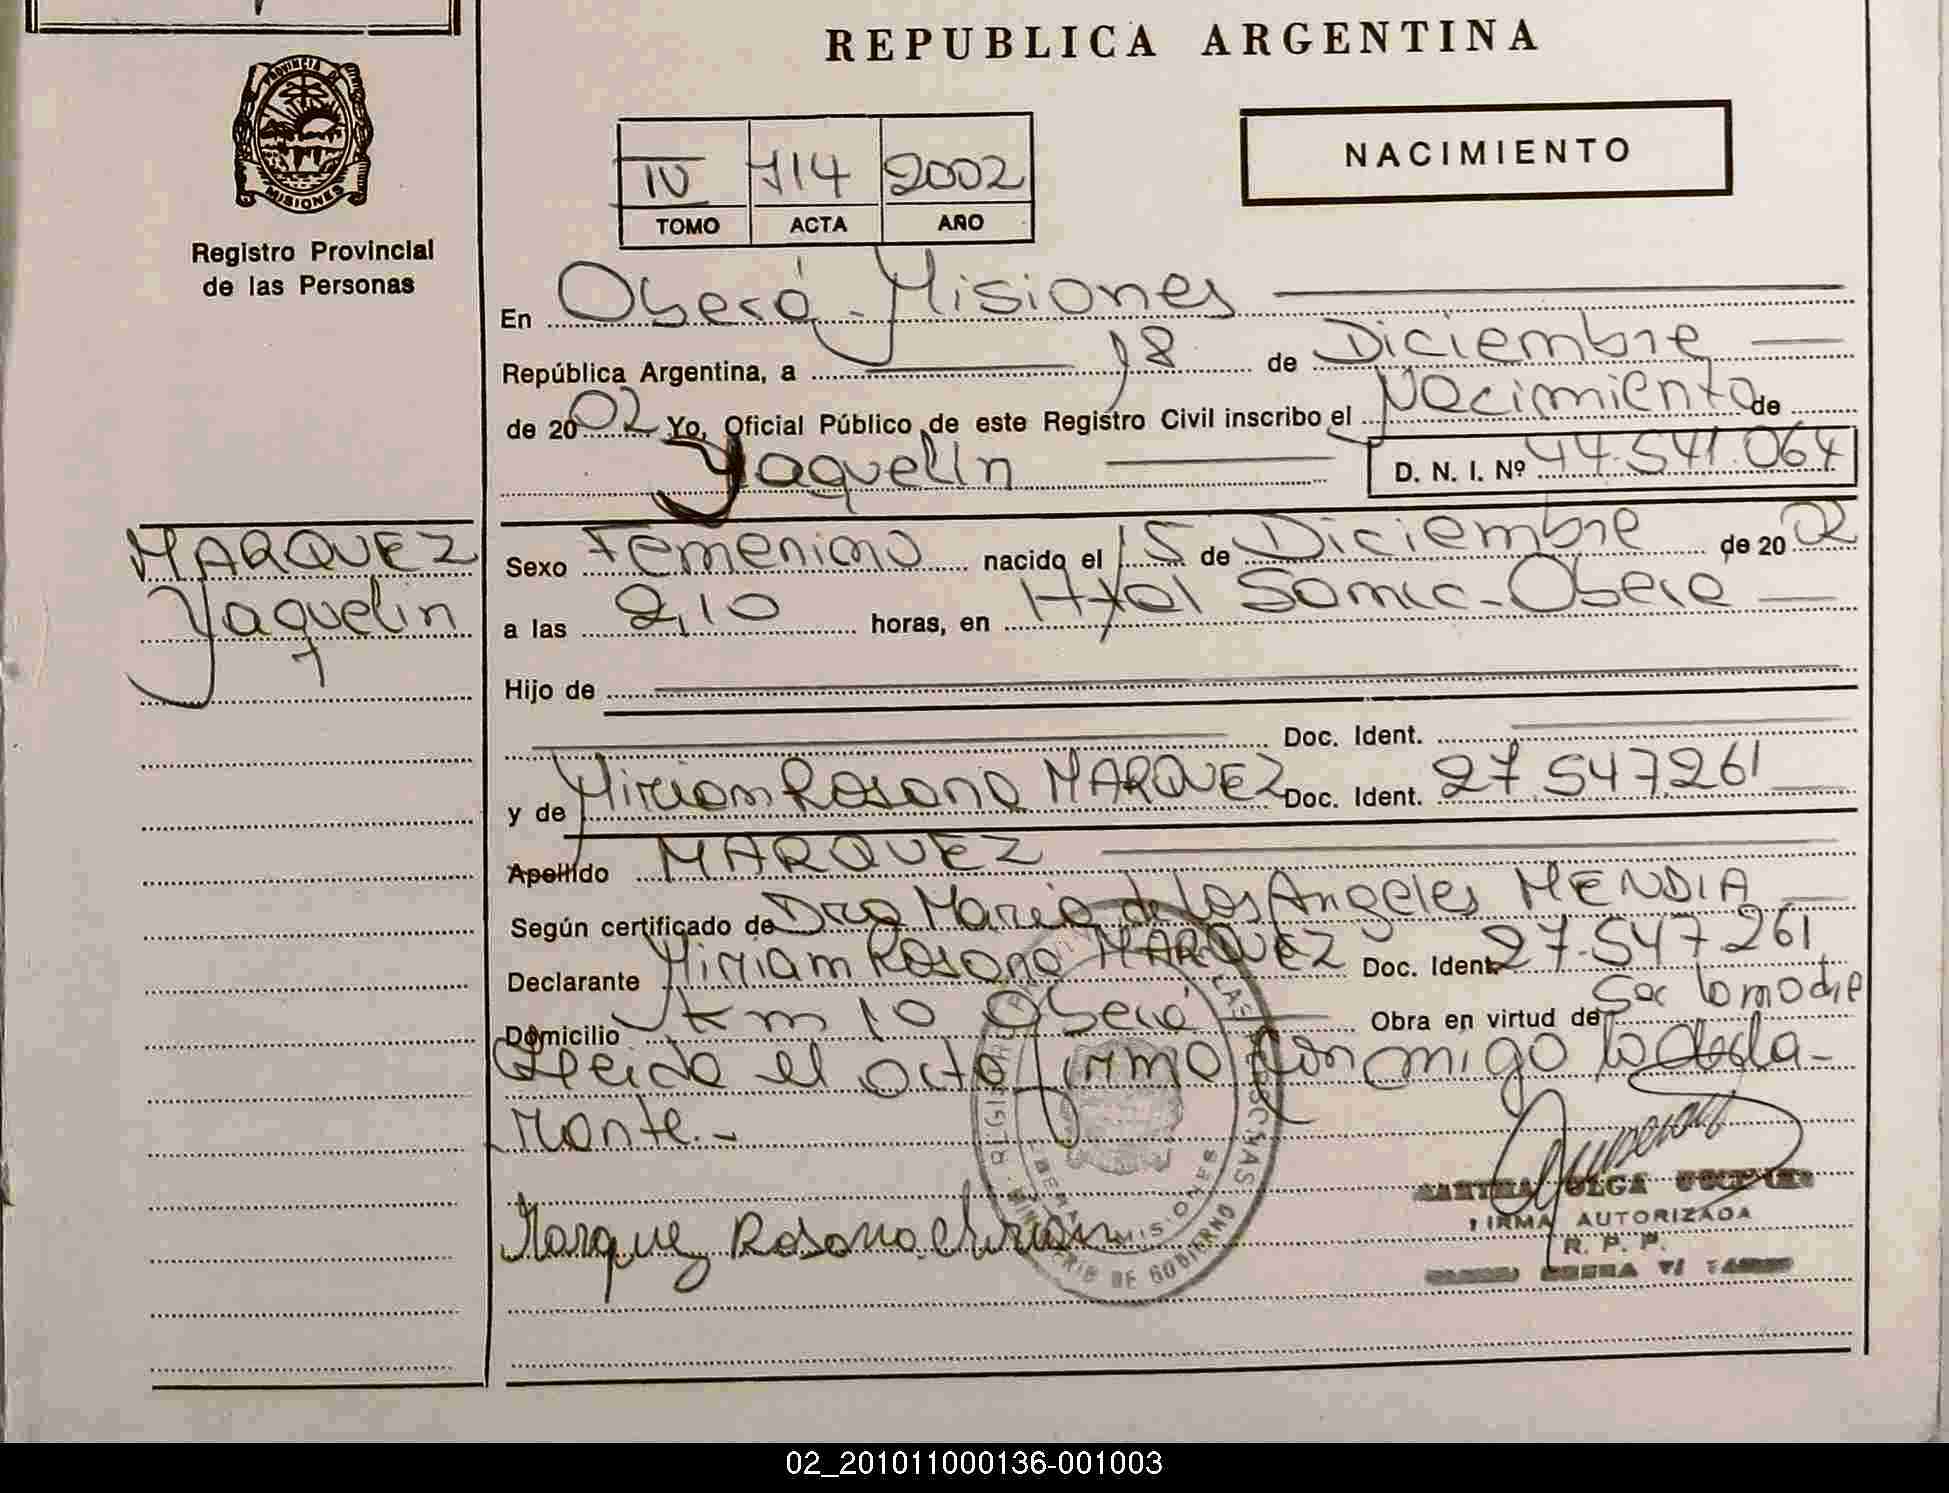 REPUBLICA ARGENTINA
NACIMIENTO
PROVINCIA DE
MISIONES
Registro Provincial
de las Personas
IV 714 2002
TOMO ACTA AÑO
En Oberá - Misiones
República Argentina, a 18 de Diciembre
de 2002 Yo, Oficial Público de este Registro Civil inscribo el Nacimiento de
Yaquelin D. N. I. Nº 44.541.064
MARQUEZ
Yaquelin
Sexo Femenino nacido el 15 de Diciembre de 2002
a las 2,10 horas, en Htal Samic - Oberá
Hijo de
Doc. Ident.
y de Miriam Rosana MARQUEZ Doc. Ident. 27 547261
Apellido MARQUEZ
Según certificado de Dra Maria de los Angeles MENDIA
Declarante Miriam Rosana MARQUEZ Doc. Ident 27.547.261
Domicilio km 10 Oberá Obra en virtud de Ser la madre
Leida el acta firma conmigo la decla-
rante.-
Marquez Rosana Miriam
MINISTERIO DE GOBIERNO
MISIONES
OLGA
FIRMA AUTORIZADA
R. P. P.
02_201011000136-001003